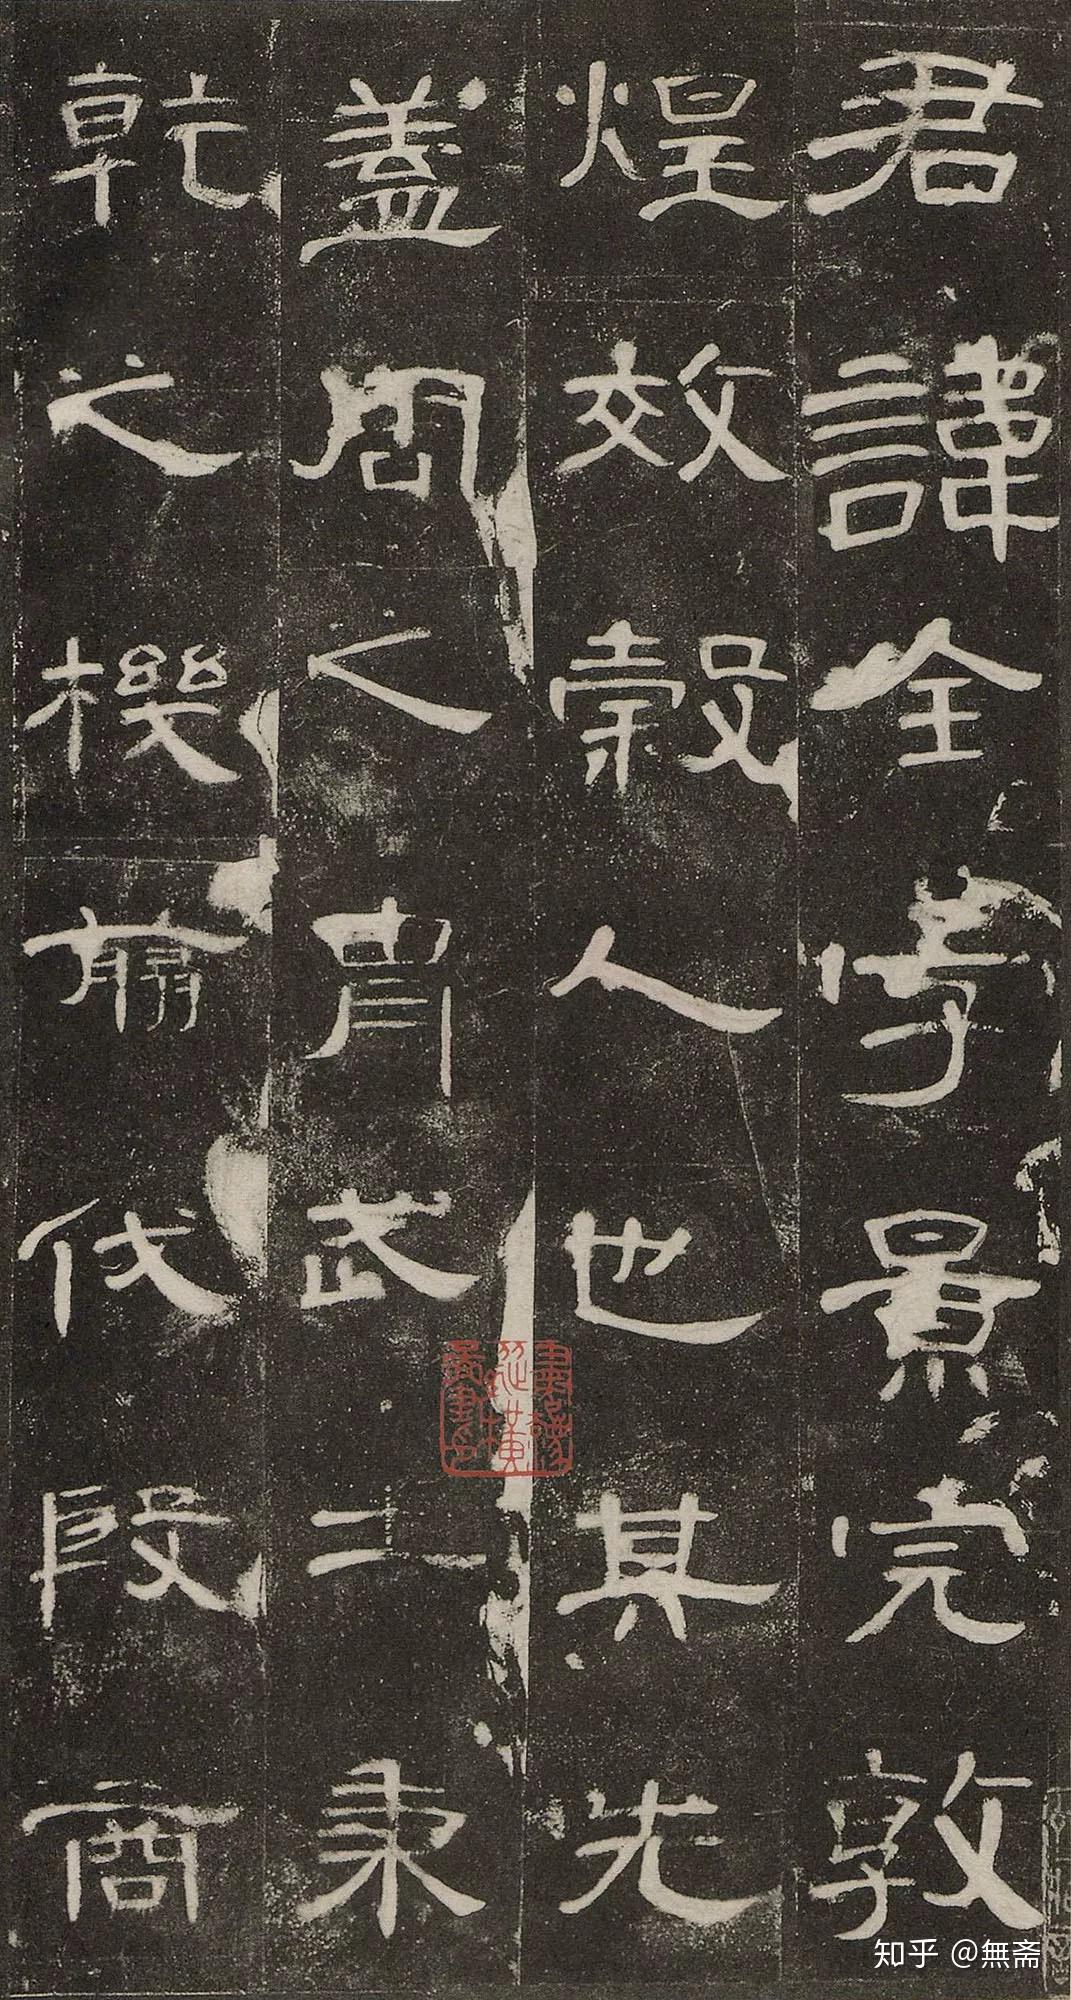 君諱全字景完敦
煌效穀人也其先
盖周之胄武王秉
乾之機翦伐殷商
知乎 @無斋